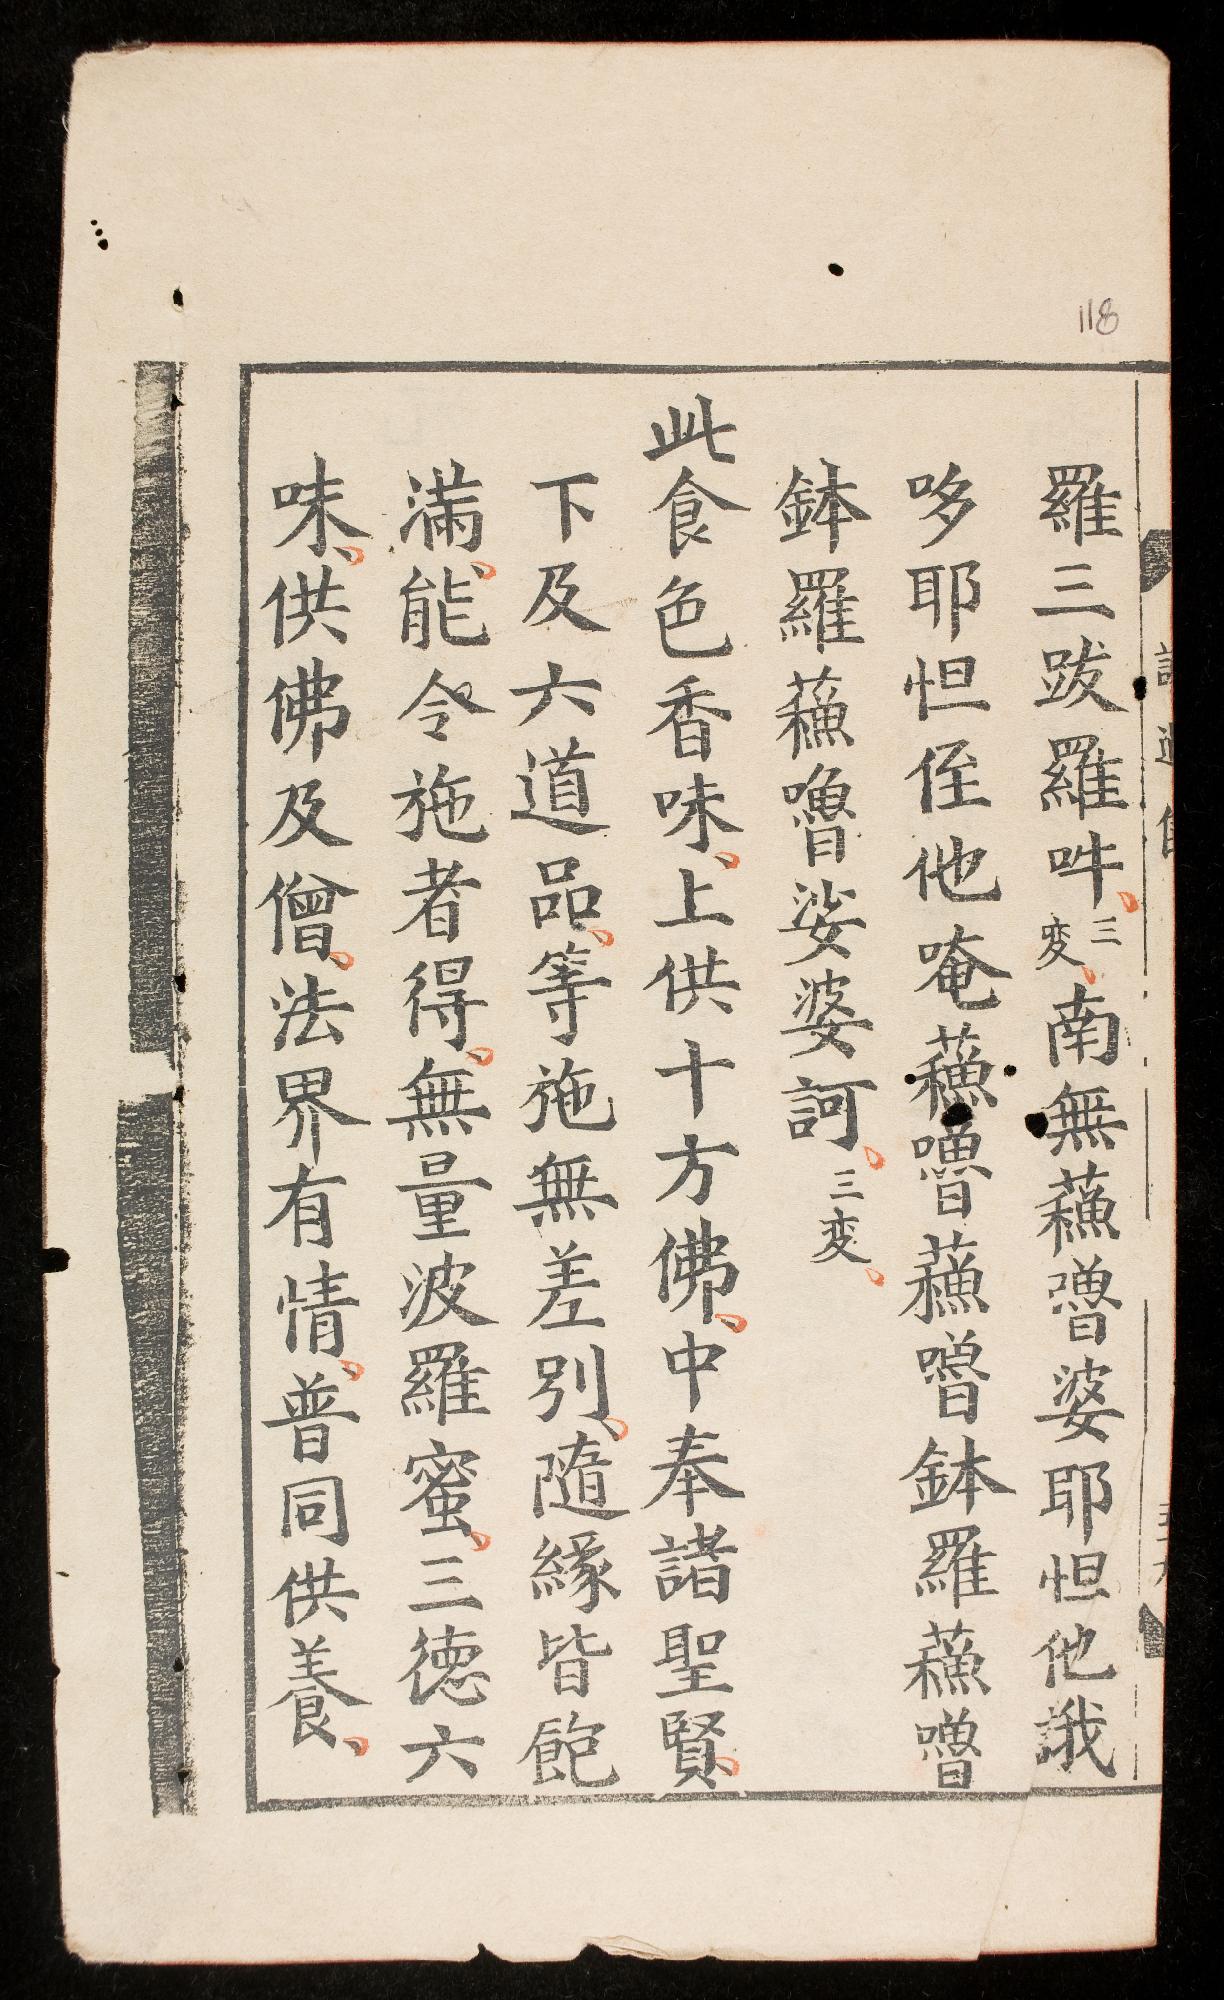 118
羅三跋羅吽三変南無蘓嚕婆耶怛他誐
哆耶怛侄他唵蘓嚕蘓嚕鉢羅蘓嚕
鉢羅蘓嚕娑婆訶三変
此食色香味上供十方佛中奉諸聖賢
下及六道品等施無差別隨緣皆飽
滿能令施者得無量波羅蜜三德六
味供佛及僧法界有情普同供養